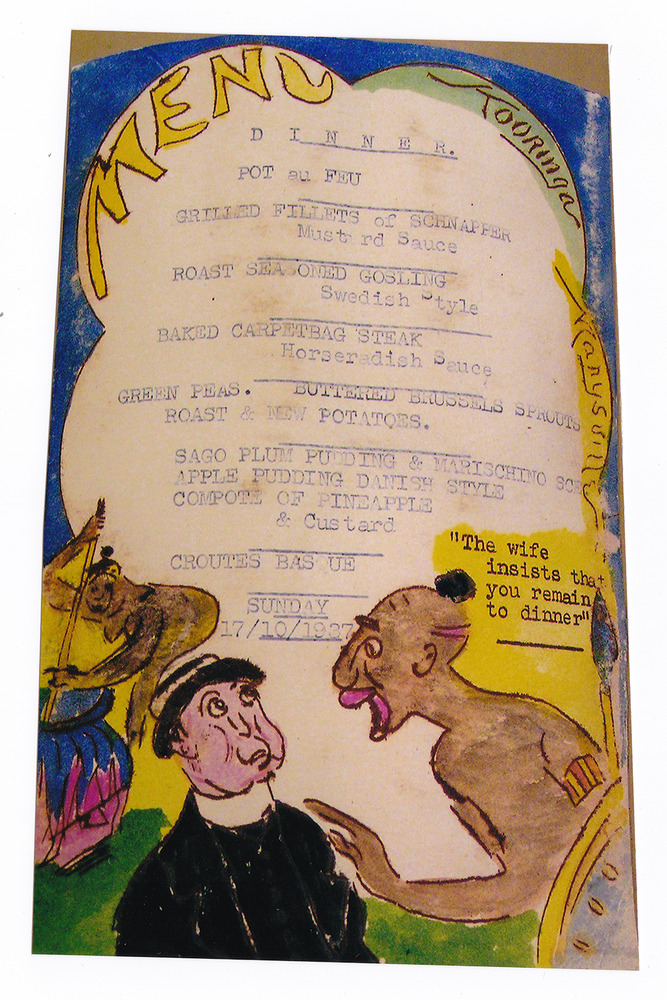 MENU
Kooringa
D I N N E R.
POT au FEU
GRILLED FILLETS of SCHNAPPER
Must rd Sauce
ROAST SEA ONED GOSLING
Swedish Style
BAKED CARPETBAG STEAK
Horseradish Sauce
GREEN PEAS. BUTTERED BRUSSELS SPROUTS
ROAST & NEW POTATOES.
SAGO PLUM PUDDING & MARISCHINO SC
APPLE PUDDING DANISH STYLE
COMPOTE OF PINEAPPLE
& Custard
CROUTES BAS UE
SUNDAY
17/10/1927
"The wife
insists that
you remain
to dinner"